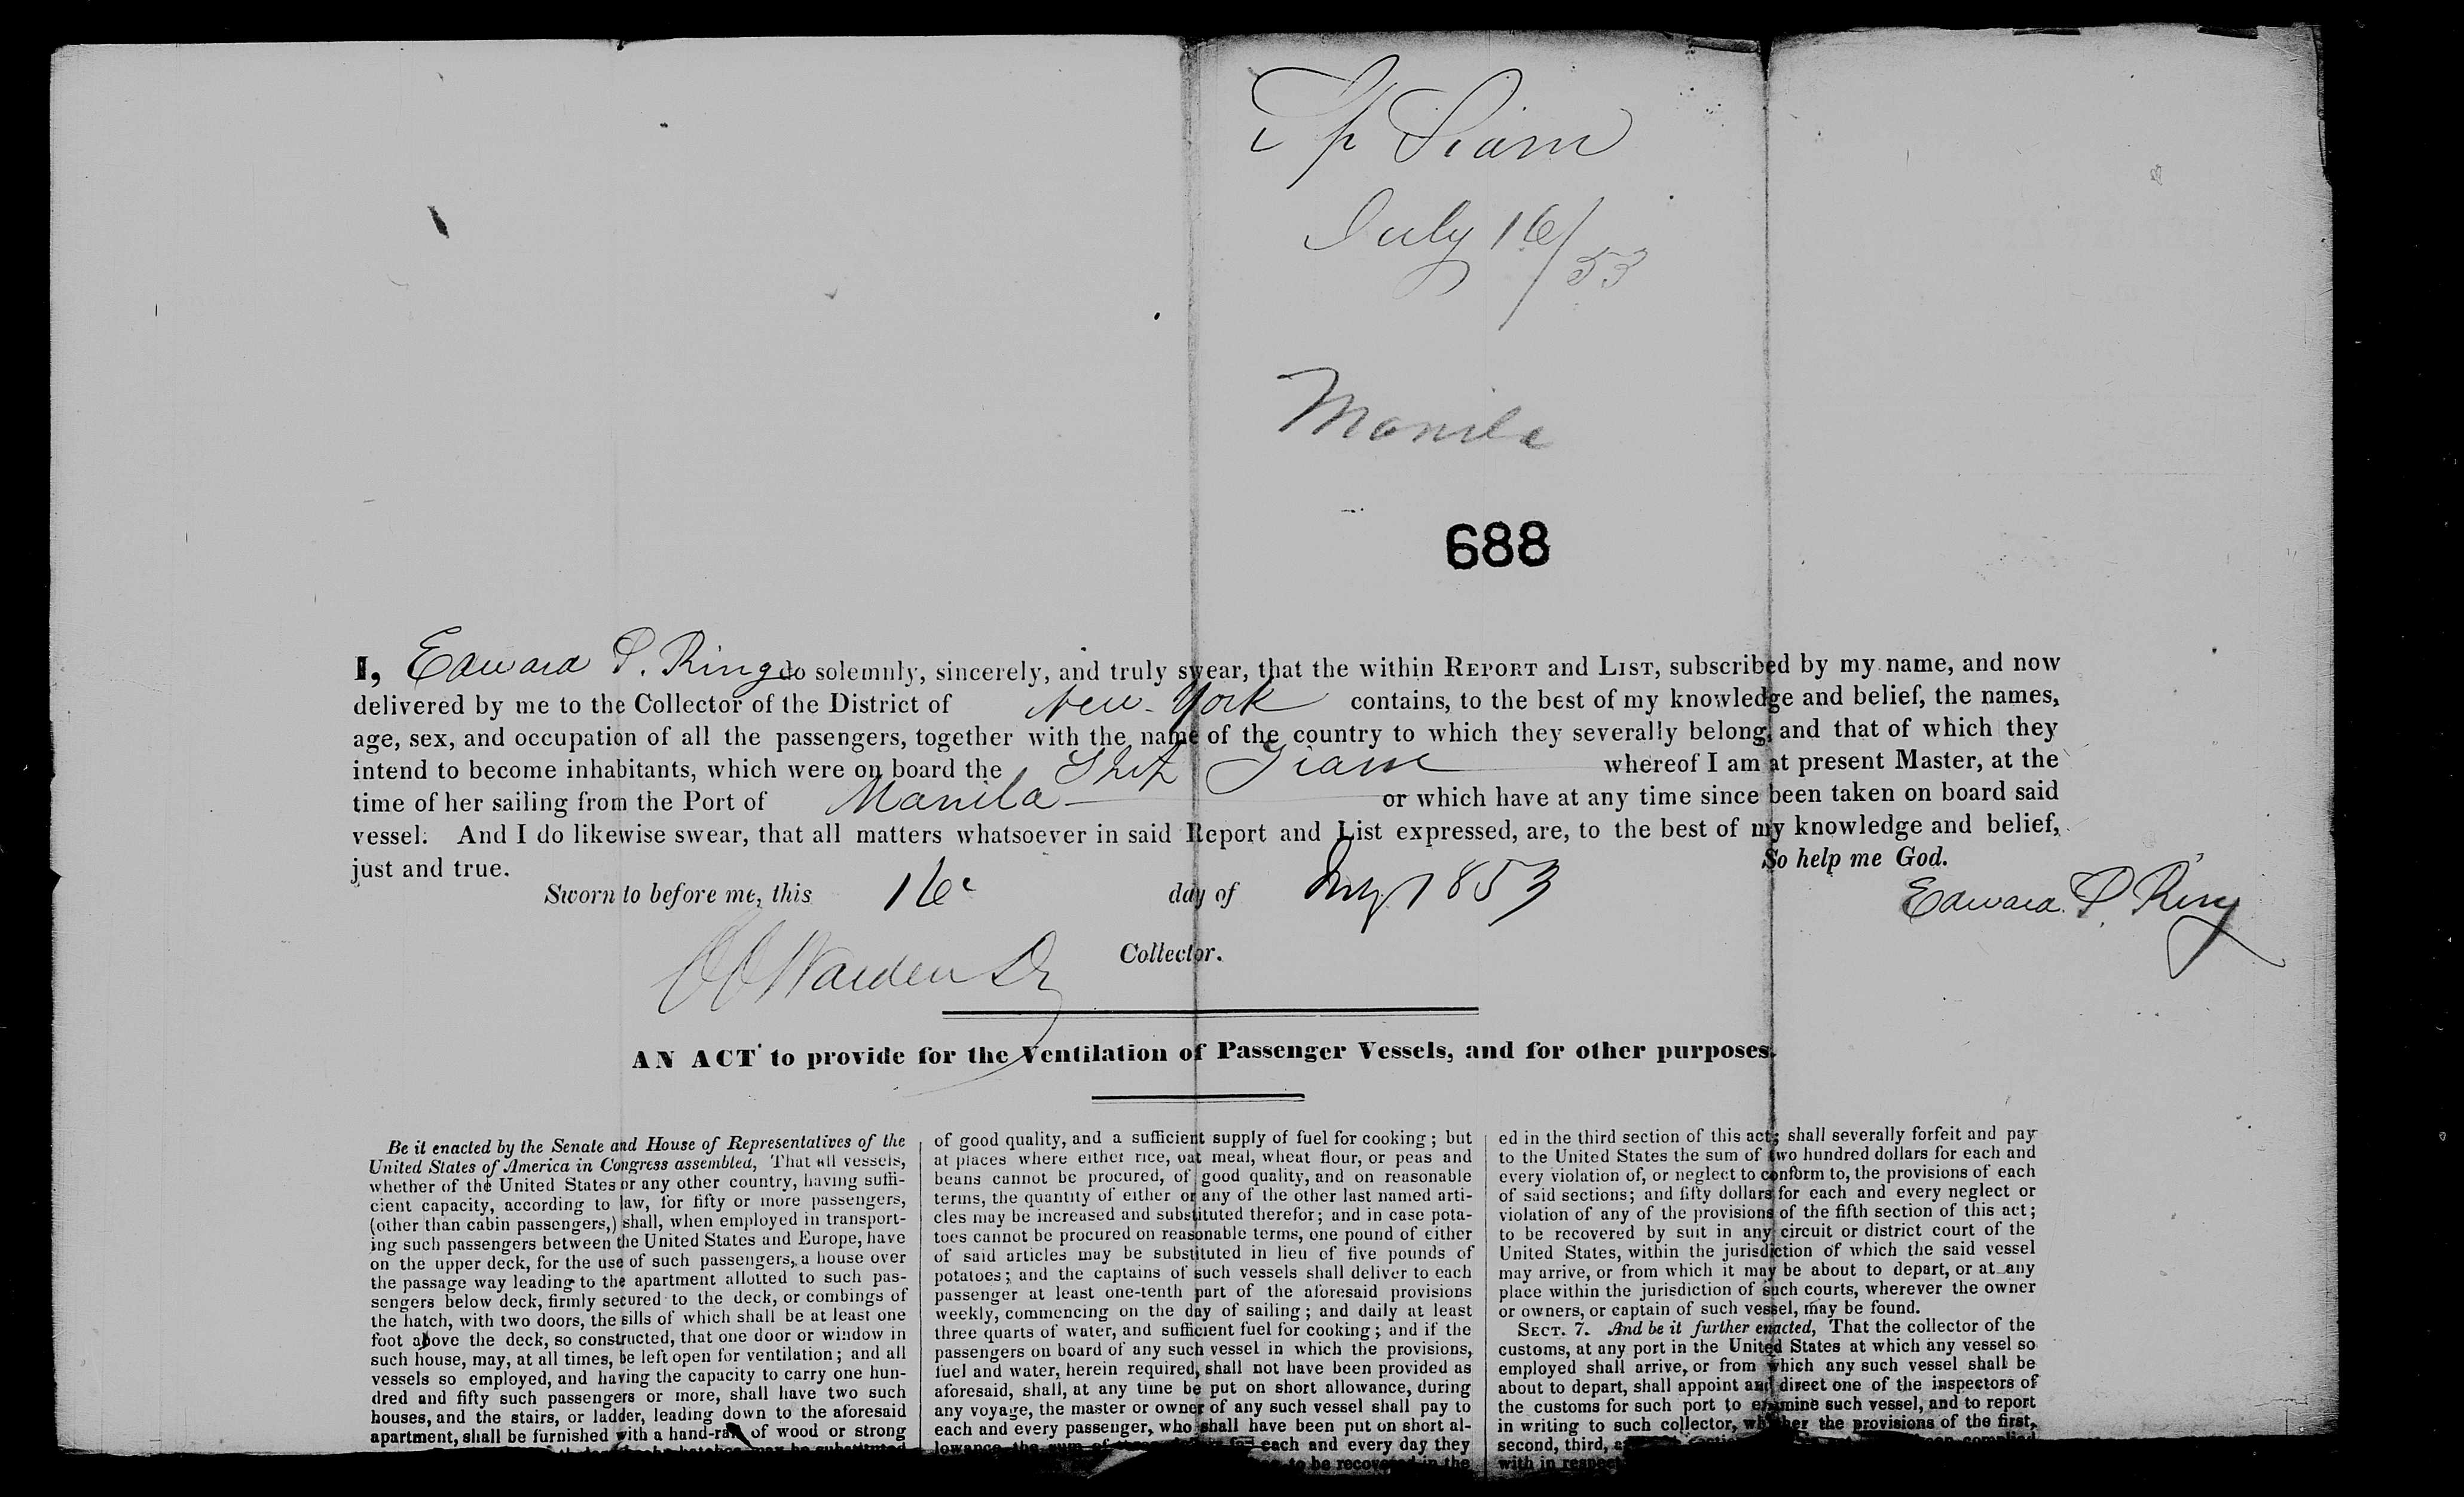 Sp Siam
July 16/53
Manila
688
I, Edward P. Ring do solemnly, sincerely, and truly swear, that the within REPORT and LIST, subscribed by my name, and now
delivered by me to the Collector of the District of New-York contains, to the best of my knowledge and belief, the names,
age, sex, and occupation of all the passengers, together with the name of the country to which they severally belong, and that of which they
intend to become inhabitants, which were on board the Ship Siam whereof I am at present Master, at the
time of her sailing from the Port of Manila or which have at any time since been taken on board said
vessel. And I do likewise swear, that all matters whatsoever in said Report and List expressed, are, to the best of my knowledge and belief,
just and true. So help me God.
Sworn to before me, this 16 day of July 1853
Edward P. Ring
Collector.
AN ACT to provide for the Ventilation of Passenger Vessels, and for other purposes.
Be it enacted by the Senate and House of Representatives of the
United States of America in Congress assembled, That all vessels,
whether of the United States or any other country, having suffi-
cient capacity, according to law, for fifty or more passengers,
(other than cabin passengers,) shall, when employed in transport-
ing such passengers between the United States and Europe, have
on the upper deck, for the use of such passengers, a house over
the passage way leading to the apartment allotted to such pas-
sengers below deck, firmly secured to the deck, or combings of
the hatch, with two doors, the sills of which shall be at least one
foot above the deck, so constructed, that one door or window in
such house, may, at all times, be left open for ventilation; and all
vessels so employed, and having the capacity to carry one hun-
dred and fifty such passengers or more, shall have two such
houses, and the stairs, or ladder, leading down to the aforesaid
apartment, shall be furnished with a hand-rail of wood or strong
may be substituted
of good quality, and a sufficient supply of fuel for cooking; but
at places where either rice, oat meal, wheat flour, or peas and
beans cannot be procured, of good quality, and on reasonable
terms, the quantity of either or any of the other last named arti-
cles may be increased and substituted therefor; and in case pota-
toes cannot be procured on reasonable terms, one pound of either
of said articles may be substituted in lieu of five pounds of
potatoes; and the captains of such vessels shall deliver to each
passenger at least one-tenth part of the aforesaid provisions
weekly, commencing on the day of sailing; and daily at least
three quarts of water, and sufficient fuel for cooking; and if the
passengers on board of any such vessel in which the provisions,
fuel and water, herein required, shall not have been provided as
aforesaid, shall, at any time be put on short allowance, during
any voyage, the master or owner of any such vessel shall pay to
each and every passenger, who shall have been put on short al-
lowance, the sum of each and every day they
to be recovered in the
ed in the third section of this act; shall severally forfeit and pay
to the United States the sum of two hundred dollars for each and
every violation of, or neglect to conform to, the provisions of each
of said sections; and fifty dollars for each and every neglect or
violation of any of the provisions of the fifth section of this act;
to be recovered by suit in any circuit or district court of the
United States, within the jurisdiction of which the said vessel
may arrive, or from which it may be about to depart, or at any
place within the jurisdiction of such courts, wherever the owner
or owners, or captain of such vessel, may be found.
SECT. 7. And be it further enacted, That the collector of the
customs, at any port in the United States at which any vessel so
employed shall arrive, or from which any such vessel shall be
about to depart, shall appoint and direct one of the inspectors of
the customs for such port to examine such vessel, and to report
in writing to such collector, whether the provisions of the first,
second, third,
with in respect